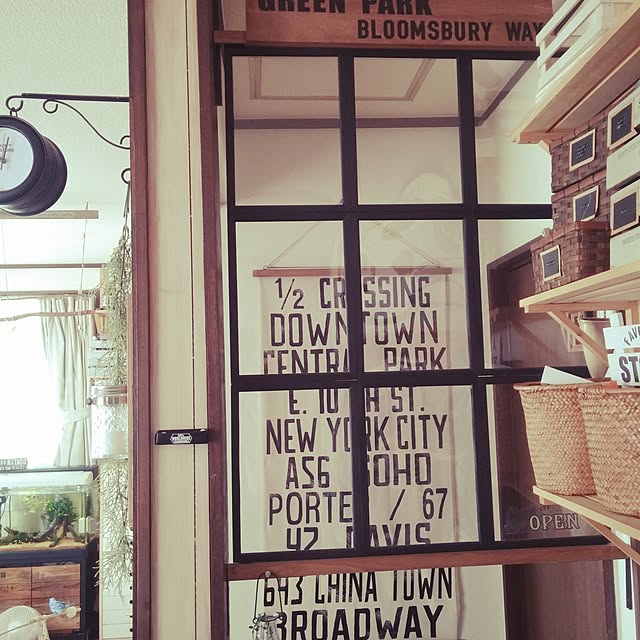 GREEN PARK
BLOOMSBURY WAY
1/2 CR SSING
DOWNTOWN
CENTRA PARK
E. 10 H ST.
NEW YORK CITY
AS6 SOHO
PORTE / 67
42 DAVIS
643 CHINA TOWN
BROADWAY
FAV
ST
OPEN